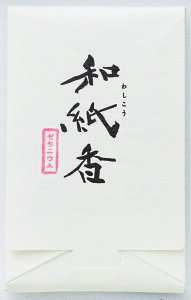 和紙香
わしこう
ゼラニウム